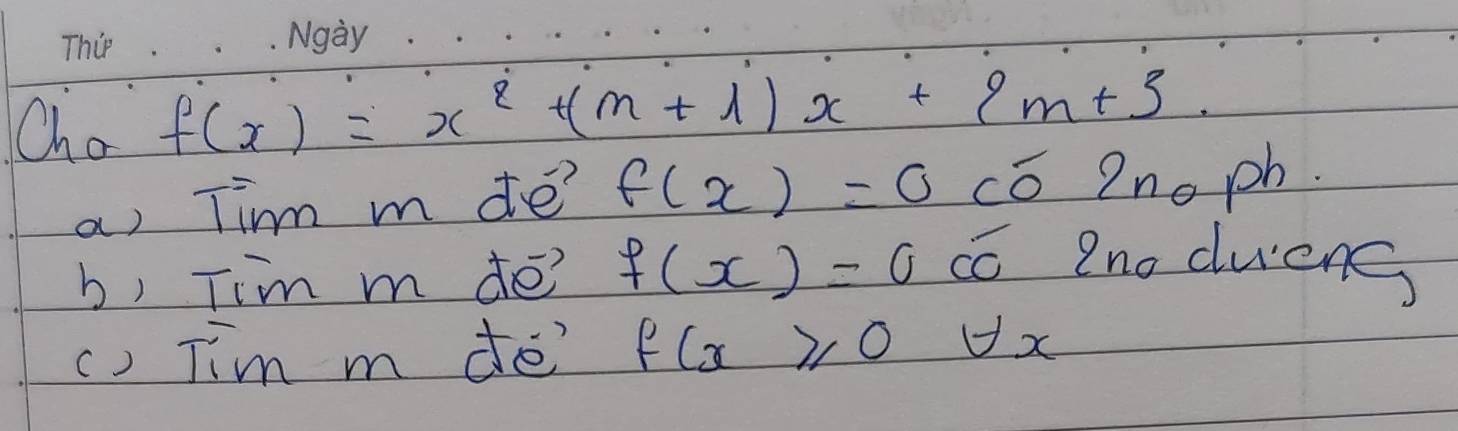 Thứ . . . Ngày . . . . . . . .
Cho f(x) = x² +(m + 1) x + 2m + 3.
a) Tìm m để f(x) = 0 có 2 no ph.
b) Tìm m để f(x) = 0 có 2 no dương
c) Tìm m để f(x ⩾ 0 ∀x